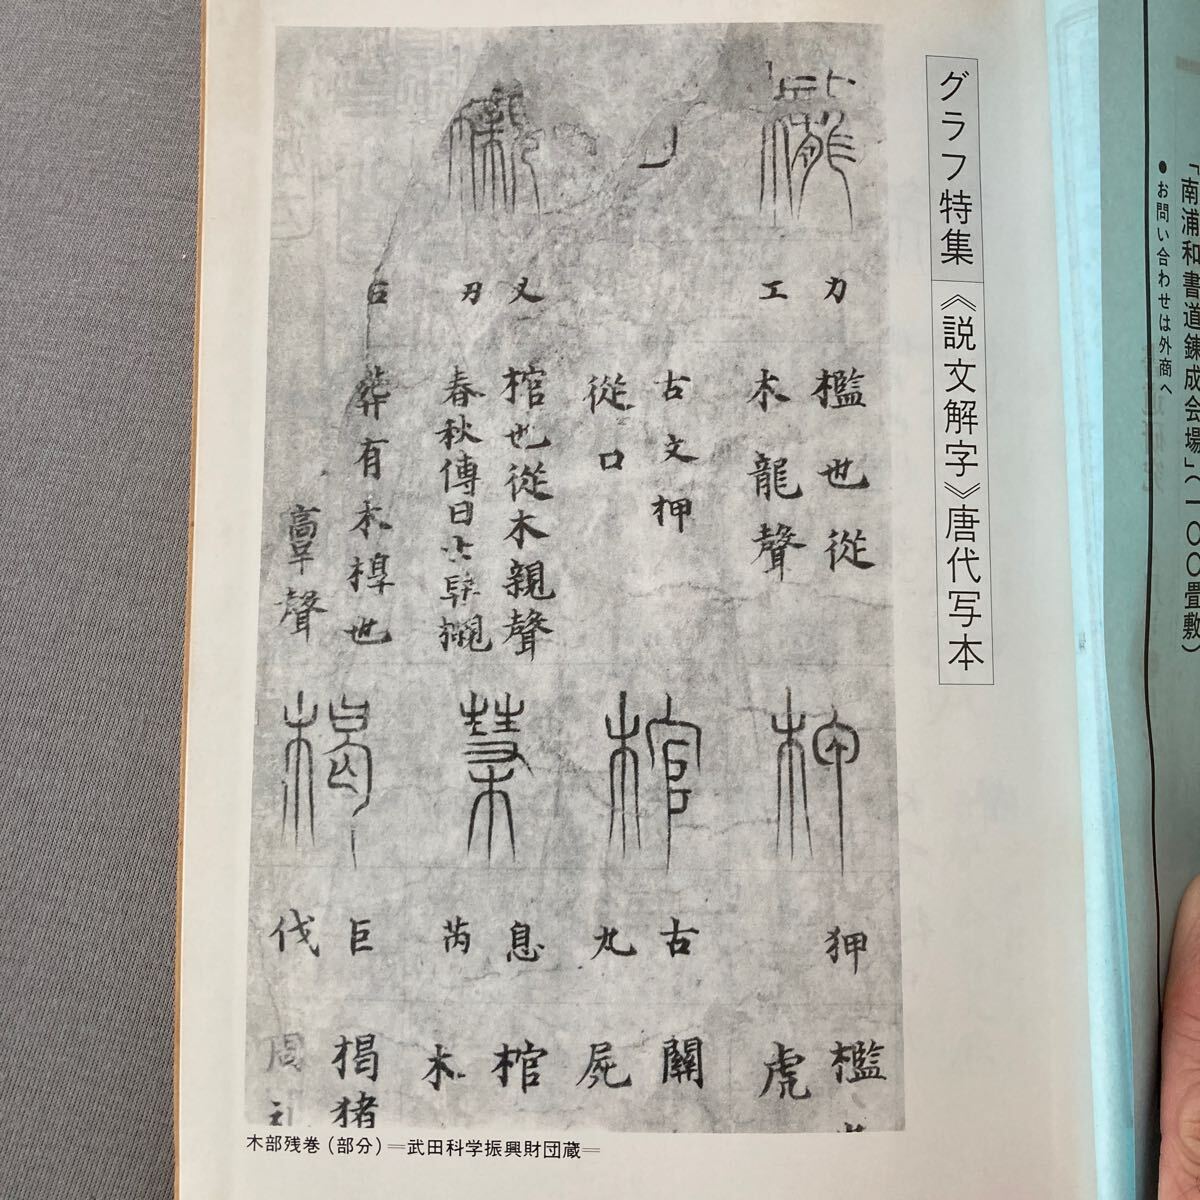 「南浦和書道錬成会場」(一〇〇畳敷)
●お問い合わせは外商へ
グラフ特集《説文解字》唐代写本
力 檻也從
工 木龍聲
古文柙
從口
乂 棺也從木親聲
刃 春秋傳曰士輿櫬
巨 葬有木㯫也
𩫏聲
柙 棺 槥 楬
狎 檻
虎
古 關
丸 屍
息 棺
芮 木
巨 楬猪
伐 周礼
木部残巻(部分)═武田科学振興財団蔵═